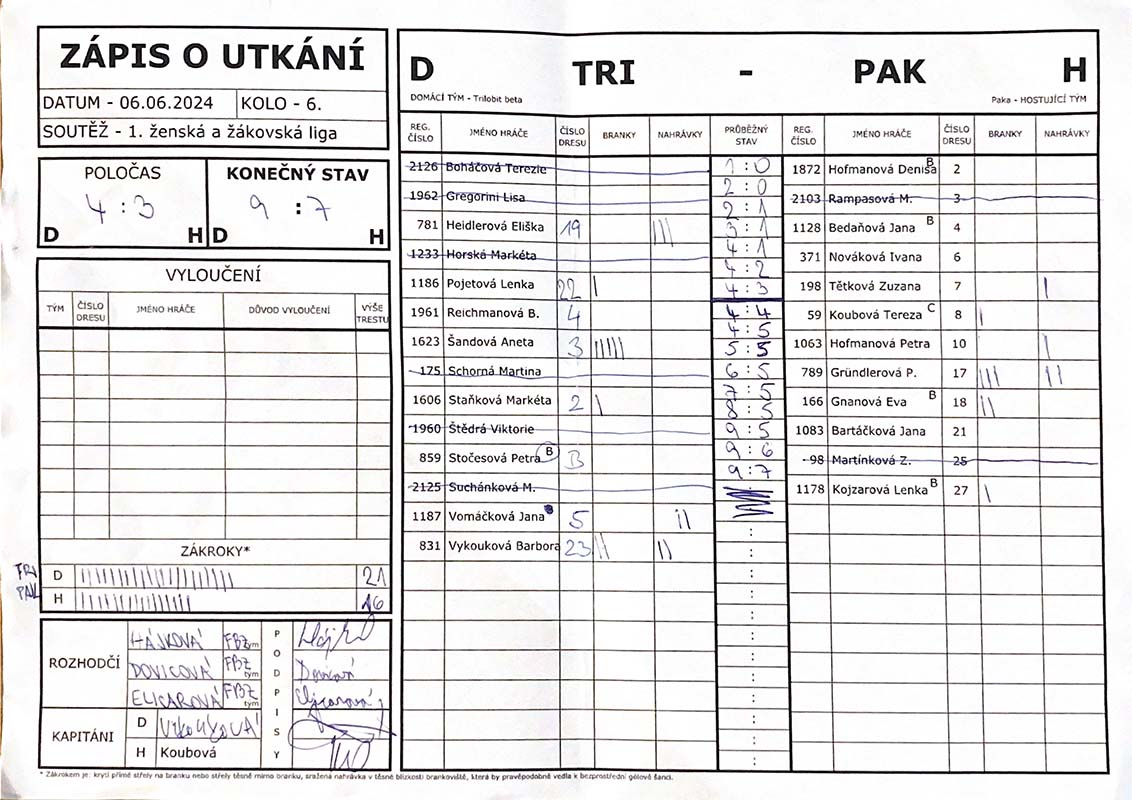 ZÁPIS O UTKÁNÍ
DATUM - 06.06.2024 KOLO - 6.
SOUTĚŽ - 1. ženská a žákovská liga
POLOČAS KONEČNÝ STAV
4 : 3 9 : 7
D H D H
VYLOUČENÍ
TÝM ČÍSLO DRESU JMÉNO HRÁČE DŮVOD VYLOUČENÍ VÝŠE TRESTU
ZÁKROKY*
TRI D 21
PAK H 16
ROZHODČÍ
HÁJKOVÁ FBŽ tým
DOVICOVÁ FBŽ tým
ELICAROVÁ FBŽ tým
PODPISY
KAPITÁNI
D VYKOUKOVÁ
H Koubová
D TRI - PAK H
DOMÁCÍ TÝM - Trilobit beta Paka - HOSTUJÍCÍ TÝM
REG. ČÍSLO JMÉNO HRÁČE ČÍSLO DRESU BRANKY NAHRÁVKY PRŮBĚŽNÝ STAV REG. ČÍSLO JMÉNO HRÁČE ČÍSLO DRESU BRANKY NAHRÁVKY
2126 Boháčová Terezie
1962 Gregorini Lisa
781 Heidlerová Eliška 19 |||
1233 Horská Markéta
1186 Pojetová Lenka 22 |
1961 Reichmanová B. 4
1623 Šandová Aneta 3 |||||
175 Schorná Martina
1606 Staňková Markéta 2 |
1960 Štědrá Viktorie
859 Stočesová Petra B B
2125 Suchánková M.
1187 Vomáčková Jana 5 ||
831 Vykouková Barbora 23 || ||
1 : 0
2 : 0
2 : 1
3 : 1
4 : 1
4 : 2
4 : 3
4 : 4
4 : 5
5 : 5
6 : 5
7 : 5
8 : 5
9 : 5
9 : 6
9 : 7
1872 Hofmanová Denisa B 2
2103 Rampasová M. 3
1128 Bedaňová Jana B 4
371 Nováková Ivana 6
198 Tětková Zuzana 7 |
59 Koubová Tereza C 8 |
1063 Hofmanová Petra 10 |
789 Gründlerová P. 17 ||| ||
166 Gnanová Eva B 18 ||
1083 Bartáčková Jana 21
98 Martínková Z. 25
1178 Kojzarová Lenka B 27 |
* Zákrokem je: krytí přímé střely na branku nebo střely těsně mimo branku, sražená nahrávka v těsné blízkosti brankoviště, která by pravěpodobně vedla k bezprostřední gólové šanci.